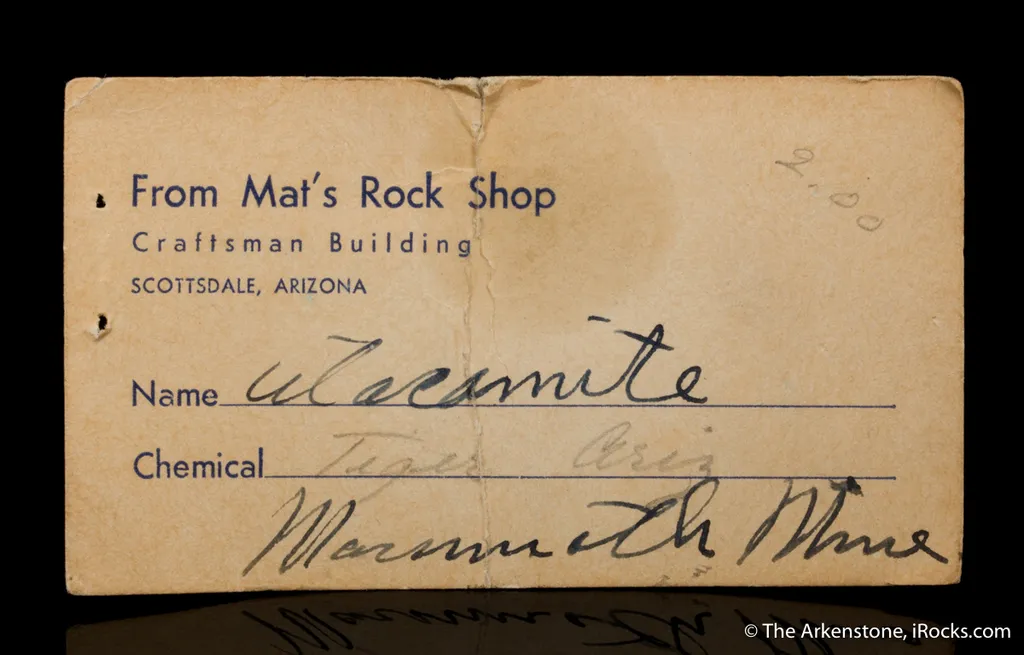 From Mat's Rock Shop
2.00
Craftsman Building
SCOTTSDALE, ARIZONA
Name Atacamite
Chemical Tiger Ariz
Mammoth Mine
© The Arkenstone, iRocks.com